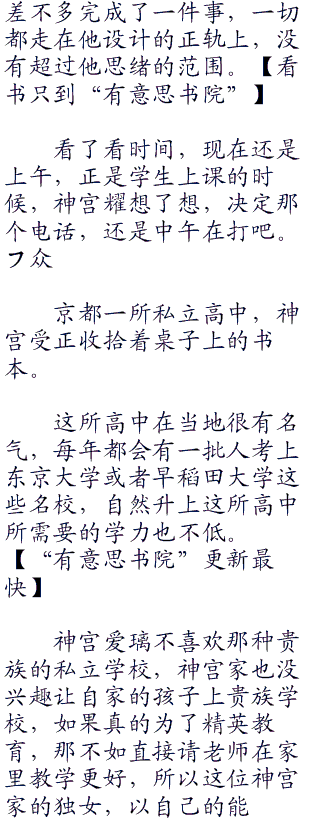 差不多完成了一件事，一切
都走在他设计的正轨上，没
有超过他思绪的范围。【看
书只到“有意思书院”】
看了看时间，现在还是
上午，正是学生上课的时
候，神宫耀想了想，决定那
个电话，还是中午在打吧。
フ众
京都一所私立高中，神
宫受正收拾着桌子上的书
本。
这所高中在当地很有名
气，每年都会有一批人考上
东京大学或者早稻田大学这
些名校，自然升上这所高中
所需要的学力也不低。
【“有意思书院”更新最
快】
神宫爱璃不喜欢那种贵
族的私立学校，神宫家也没
兴趣让自家的孩子上贵族学
校，如果真的为了精英教
育，那不如直接请老师在家
里教学更好，所以这位神宫
家的独女，以自己的能